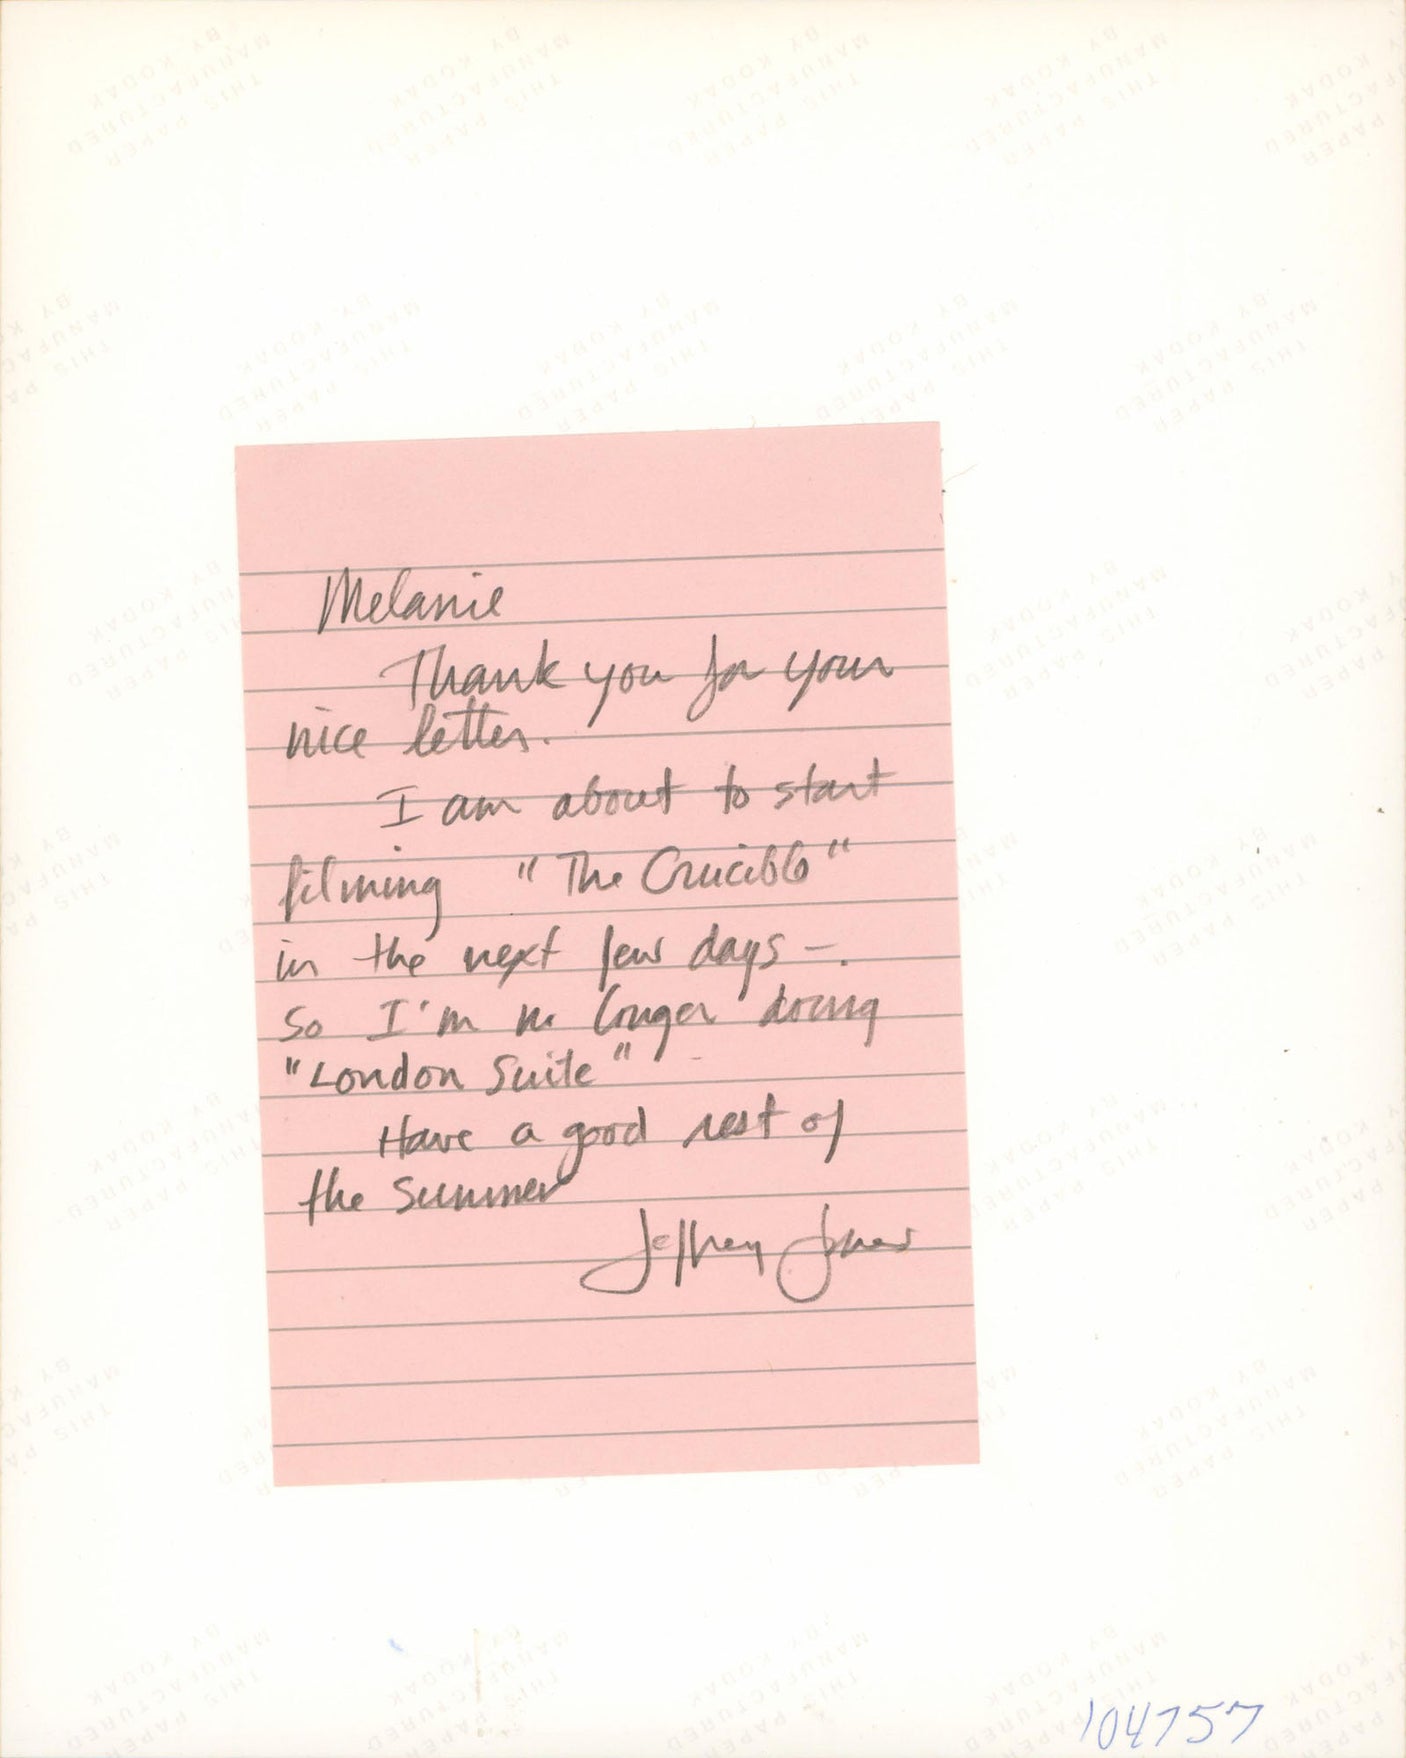 Melanie
Thank you for your
nice letter.
I am about to start
filming "The Crucible"
in the next few days -.
So I'm no longer doing
"London Suite"
Have a good rest of
the summer
Jeffrey Jones
104757
THIS PAPER
MANUFACTURED
BY KODAK